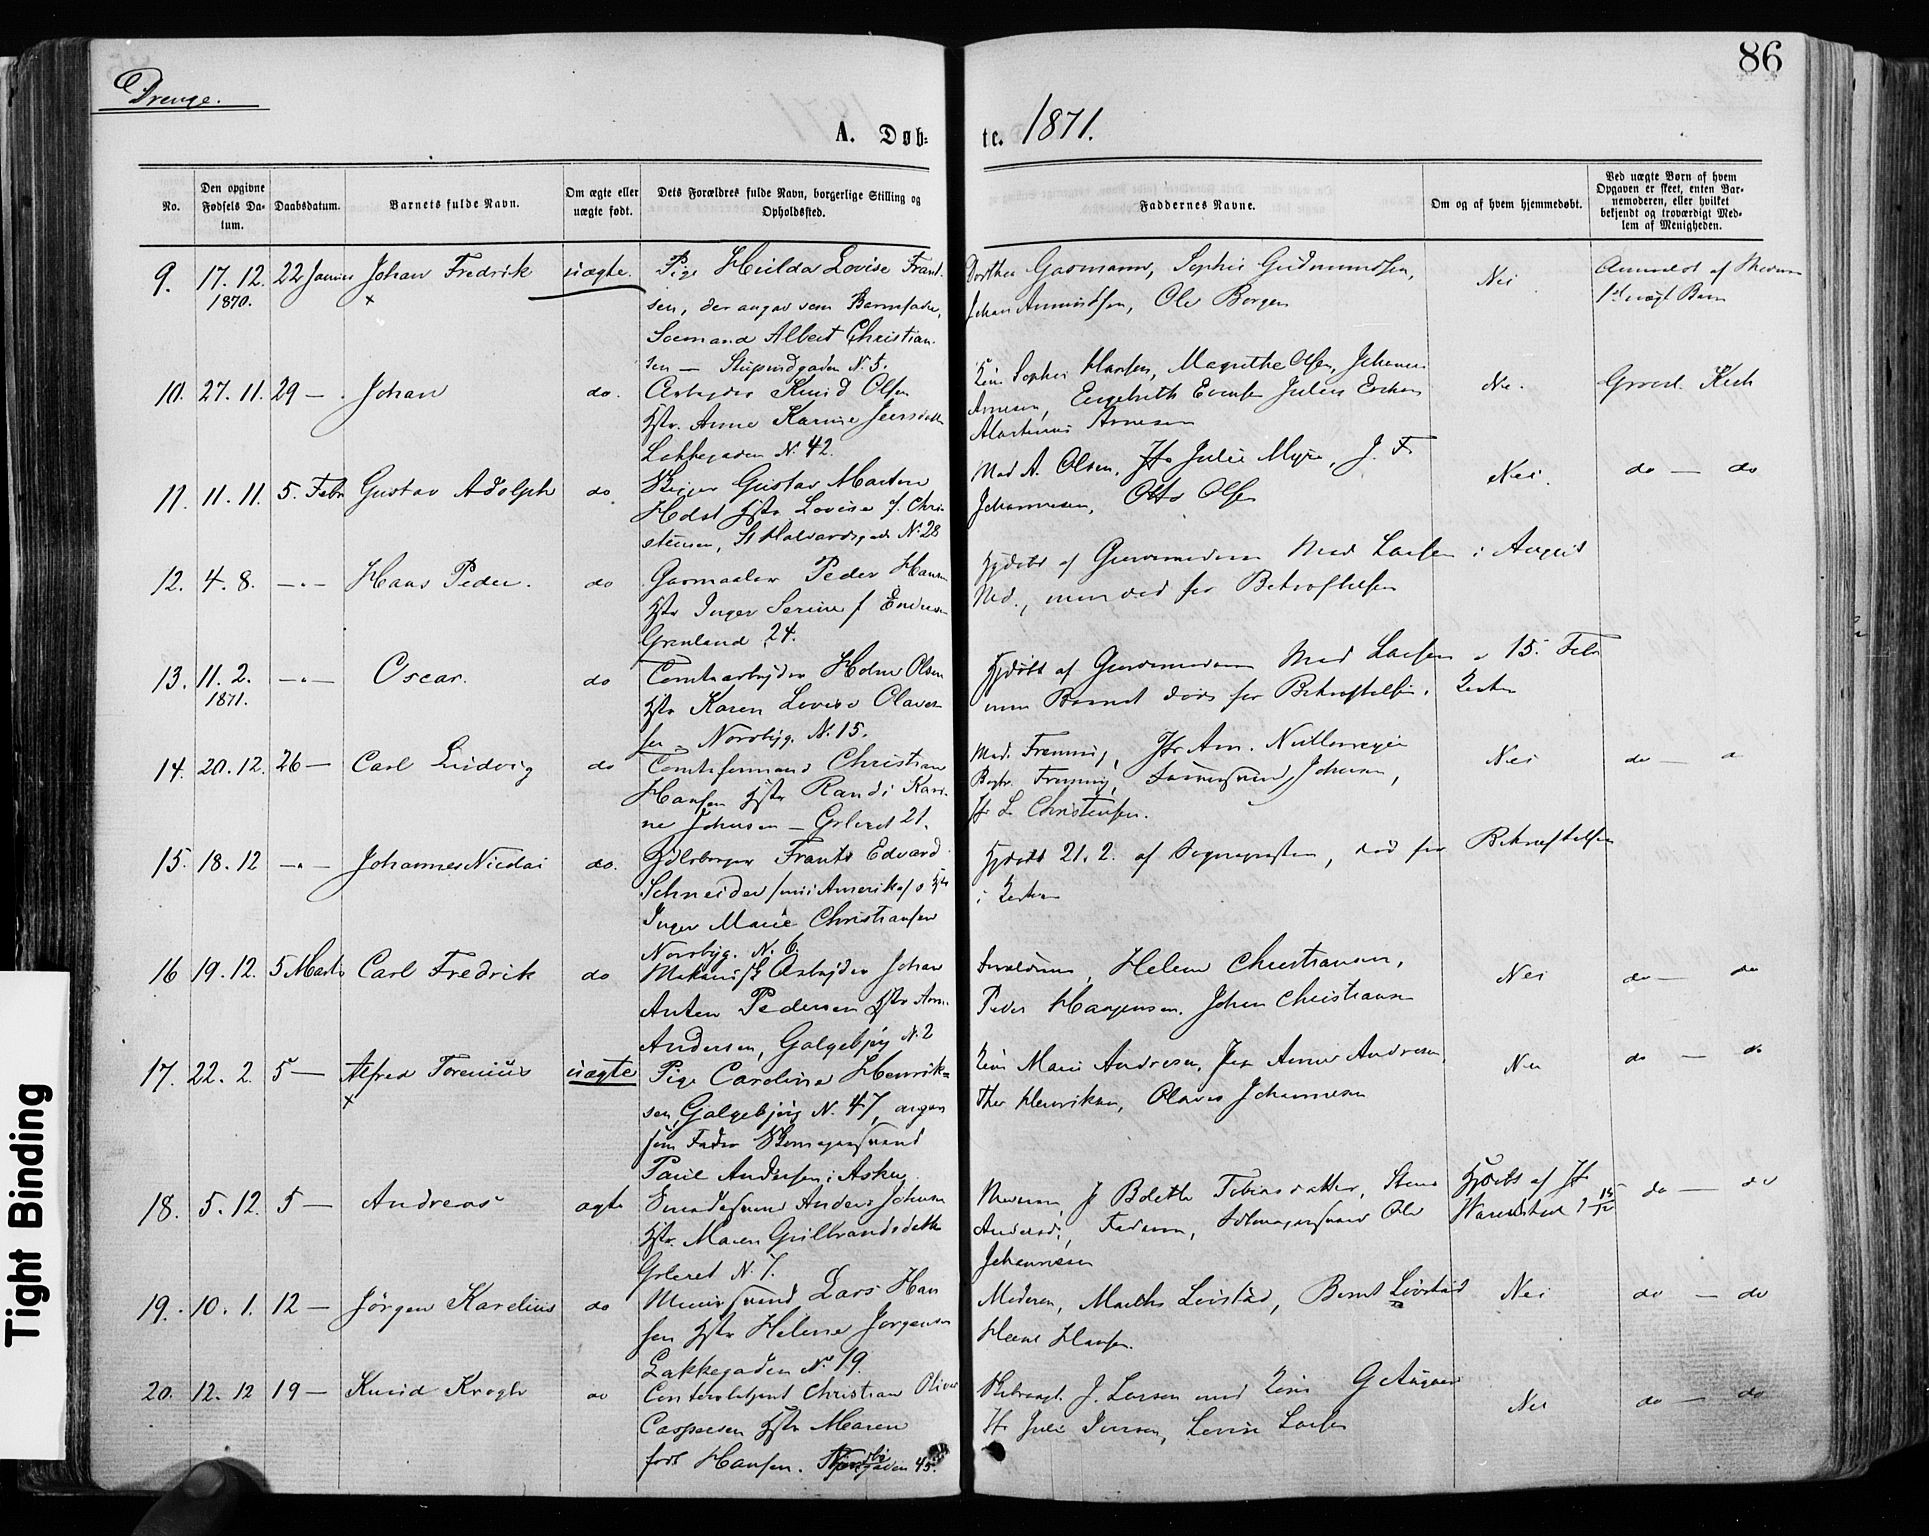 86
Drenge.
A. Døb- te. 1871.
No.
Den opgivne Fødsels Da- tum.
Daabsdatum.
Barnets fulde Navn.
Om ægte eller uægte født.
Dets Forældres fulde Navn, borgerlige Stilling og Opholdssted.
Faddernes Navne.
Om og af hvem hjemmedøbt.
Ved uægte Børn af hvem Opgaven er skeet, enten Bar- nemoderen, eller hvilket bekjendt og troværdigt Med- lem af Menigheden.
9. 17. 12. 1870. 22 Johan Fredrik uægte. Pige Hulda Lovise Frant-
sen, der angav som Barnefader,
Sømand Albert Christian-
sen — Stupindgaden N. 5.
Dorthea Gasmann, Sophie Gudmundsen,
Johan Amundsen, Ole Borgen
Nei
Anmeldt af Moderen
1st uægt Barn
10. 27. 11. 29 — Johan do. Arbeider Knud Olsen
Hstr. Anne Karine Jensdatter
Lakkegaden N. 42.
Sophie Hansen, Magrethe Olsen, Johannes
Arnesen, Engebreth Evensen Julius
Martinus Arnesen
Nei.
11. 11. 11. 5. Febr Gustav Adolph do Gustav Morten
Holst Hstr Lovise f. Chri-
stensen, St Halvardsgade N. 28
Mad A. Olsen, Jfr Julie Myre, J. F.
Johannesen, Otto Olsen
Nei.
do — do
12. 4. 8. — " — Hans Peder. do Gasmaaler Peder Hansen
Hstr Inger Serine f Endresen
Grønland 24.
Hjdøbt af Gjordemoderen Mad Larsen i August
Md., men død før Bekræftelsen
13. 11. 2. 1871. — " — Oscar. do Tomtearbeider Holm Olsen
Hstr Karen Lovise Olaves-
sen, Norbyg. N. 15.
Hjdøbt af Gjordemoderen Mad Larsen 15. Feb
men Barnet døde før Bekræftelsen i Kirken
14. 20. 12. 26 — Carl Ludvig do Tomteformand Christian
Hansen Hstr Randi Kari-
ne Johnsen — Grlered 21.
Johnsen,
L. Christensen.
Nei
do —
15. 18. 12 — " — Johannes Nicolai do. Frants Edvard
Schneider /nu i Amerika/ o Hstr
Inger Marie Christiansen
Norbyg. N. 6.
Hjdøbt 21. 2. af Sognepresten, død før Bekræftelsen
i Kirken
16 19. 12. 5 Marts Carl Fredrik do Mekanisk Arbeider Johan
Anton Pedersen Hstr Anne
Andersen, Galgebjerg N. 2
Forældrene, Helene Christiansen,
Peder Haagensen, Johan Christiansen
Nei
do — do
17. 22. 2. 5 — Alfred Torenius uægte Pige Caroline Henrik-
sen, Galgebjerg N. 47, angav
som Fader Skomagersvend
Paul Andersen i Asker
Marie Andresen, Anne Andresen
Thor Henriksen, Olaves Johannesen
Nei
do — do
18. 5. 12. 5 — Andreas ægte Smedesvend Anders Johnsen
Hstr. Maren Gulbrandsdatter
Grleret N. 7.
Moderen, J Bolette Tobiasdatter,
Faderen, Ole
Johannesen
Hjdøbt af Jfr
15/12
do — do
19. 10. 1. 12 — Jørgen Karelius do Muursvend Lars Han-
sen Hstr Helene Jørgensen
Lakkegaden No 19.
Moderen, Marthe Løvstad, Bernt Løvstad
Hans Hansen.
Nei
do — do
20. 12. 12 19 — Knud Krogh do Christian Oliver
Caspersen Hstr Maren
født Hansen. 45.
J. Larsen med G
Julie Iversen, Lovise Larsen
Nei
do — do
Tight Binding